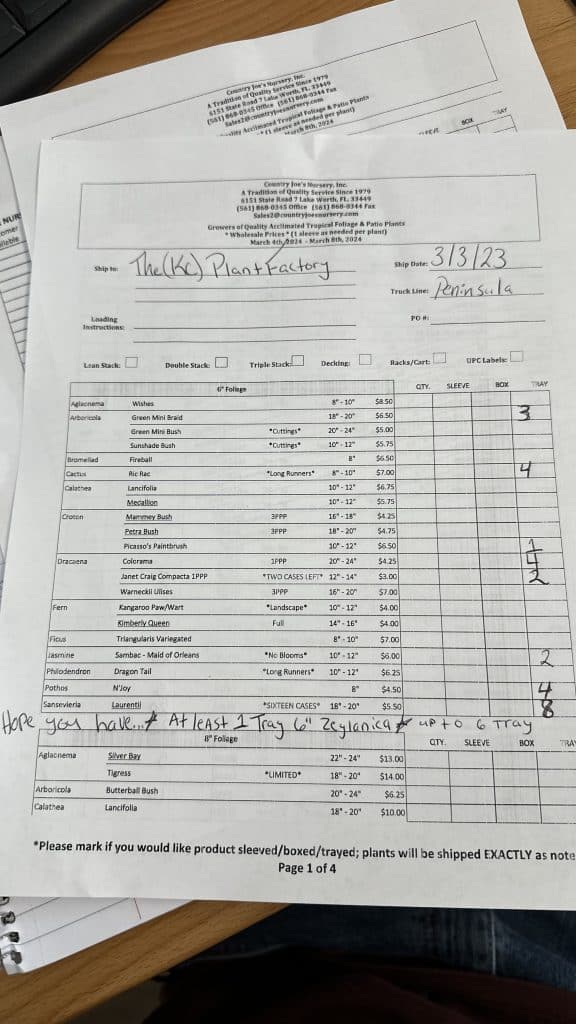 Country Joe's Nursery, Inc.
A Tradition of Quality Service Since 1979
6151 State Road 7 Lake Worth, FL. 33449
(561) 868-0345 Office (561) 868-0344 Fax
Sales2@countryjoesnursery.com
Acclimated Tropical Foliage & Patio Plants
(1 sleeve as needed per plant)
March 8th, 2024
BOX TRAY
NUR
Country Joe's Nursery, Inc.
A Tradition of Quality Service Since 1979
6151 State Road 7 Lake Worth, FL. 33449
(561) 868-0345 Office (561) 868-0344 Fax
Sales2@countryjoesnursery.com
Growers of Quality Acclimated Tropical Foliage & Patio Plants
*Wholesale Prices* (1 sleeve as needed per plant)
March 4th, 2024 - March 8th, 2024
Ship to: The (KC) Plant Factory Ship Date: 3/3/23
Truck Line: Peninsula
Loading Instructions: PO #:
Lean Stack: Double Stack: Triple Stack: Decking: Racks/Cart: UPC Labels:
6" Foliage QTY. SLEEVE BOX TRAY
Aglaonema Wishes 8" - 10" $8.50
Arboricola Green Mini Braid 18" - 20" $6.50 3
Green Mini Bush *Cuttings* 20" - 24" $5.00
Sunshade Bush *Cuttings* 10" - 12" $5.75
Bromeliad Fireball 8" $6.50
Cactus Ric Rac *Long Runners* 8" - 10" $7.00 4
Calathea Lancifolia 10" - 12" $6.75
Medallion 10" - 12" $5.75
Croton Mammey Bush 3PPP 16" - 18" $4.25
Petra Bush 3PPP 18" - 20" $4.75
Picasso's Paintbrush 10" - 12" $6.50 1
Dracaena Colorama 1PPP 20" - 24" $4.25 4
Janet Craig Compacta 1PPP *TWO CASES LEFT* 12" - 14" $3.00 2
Warneckii Ulises 3PPP 16" - 20" $7.00
Fern Kangaroo Paw/Wart *Landscape* 10" - 12" $4.00
Kimberly Queen Full 14" - 16" $4.00
Ficus Triangularis Variegated 8" - 10" $7.00
Jasmine Sambac - Maid of Orleans *No Blooms* 10" - 12" $6.00 2
Philodendron Dragon Tail *Long Runners* 10" - 12" $6.25
Pothos N'Joy 8" $4.50 4
Sansevieria Laurentii *SIXTEEN CASES* 18" - 20" $5.50 8
Hope you have... * At least 1 Tray 6" Zeylanica * up to 6 Tray
8" Foliage QTY. SLEEVE BOX TRAY
Aglaonema Silver Bay 22" - 24" $13.00
Tigress *LIMITED* 18" - 20" $14.00
Arboricola Butterball Bush 20" - 24" $6.25
Calathea Lancifolia 18" - 20" $10.00
*Please mark if you would like product sleeved/boxed/trayed; plants will be shipped EXACTLY as note
Page 1 of 4